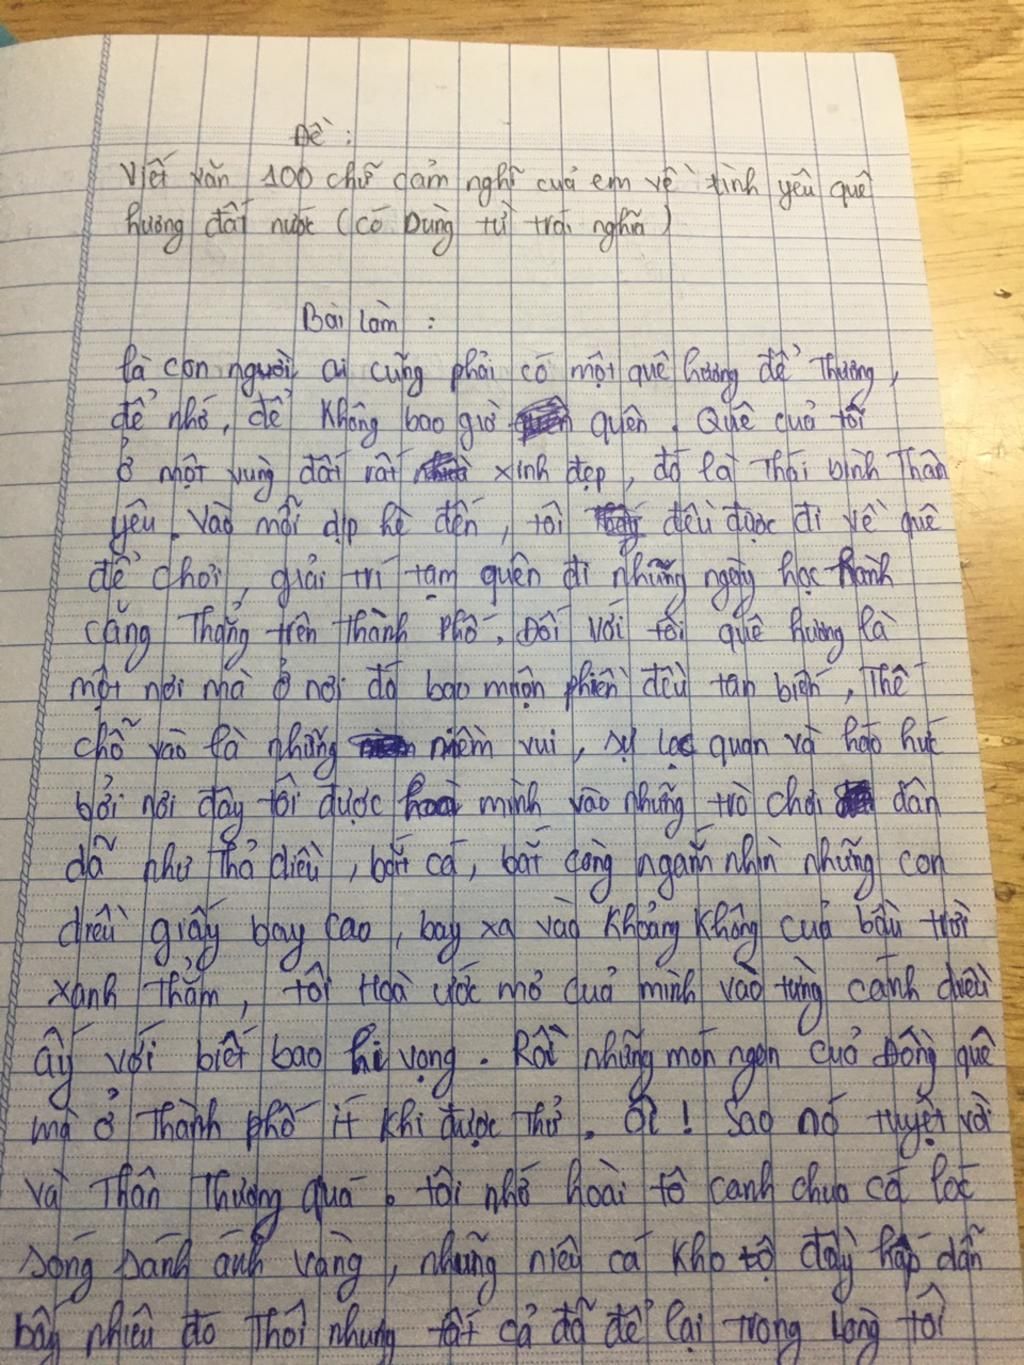 Đề :
Viết văn 100 chữ cảm nghĩ của em về tình yêu quê
hương đất nước (có Dùng từ trái nghĩa)
Bài làm :
là con người, ai cũng phải có một quê hương để Thương,
để nhớ, để không bao giờ quên. Quê của tôi
ở một vùng đất rất xinh đẹp, đó là Thái bình Thân
yêu. Vào mỗi dịp hè đến, tôi đều được đi về quê
để chơi, giải trí tạm quên đi những ngày học hành
căng Thẳng trên thành phố. Đối với tôi quê hương là
một nơi mà ở nơi đó bao muộn phiền đều tan biến, Thế
chỗ vào là những niềm vui, sự lạc quan và háo hức
bởi nơi đây tôi được hoà mình vào những trò chơi dân
dã như thả diều, bắt cá, bắt còng ngắm nhìn những con
diều giấy bay cao, bay xa vào khoảng không của bầu trời
xanh thẳm, tôi Hoà ước mơ của mình vào từng cánh diều
ấy với biết bao hi vọng. Rồi những món ngon của Đồng quê
mà ở Thành phố ít khi được Thử. Ôi ! Sao nó tuyệt vời
và Thân Thương quá. tôi nhớ hoài tô canh chua cá lóc
sóng sánh ánh vàng, những niêu cá kho tộ đầy hấp dẫn
bấy nhiêu đó Thôi nhưng tất cả đã để lại trong lòng tôi